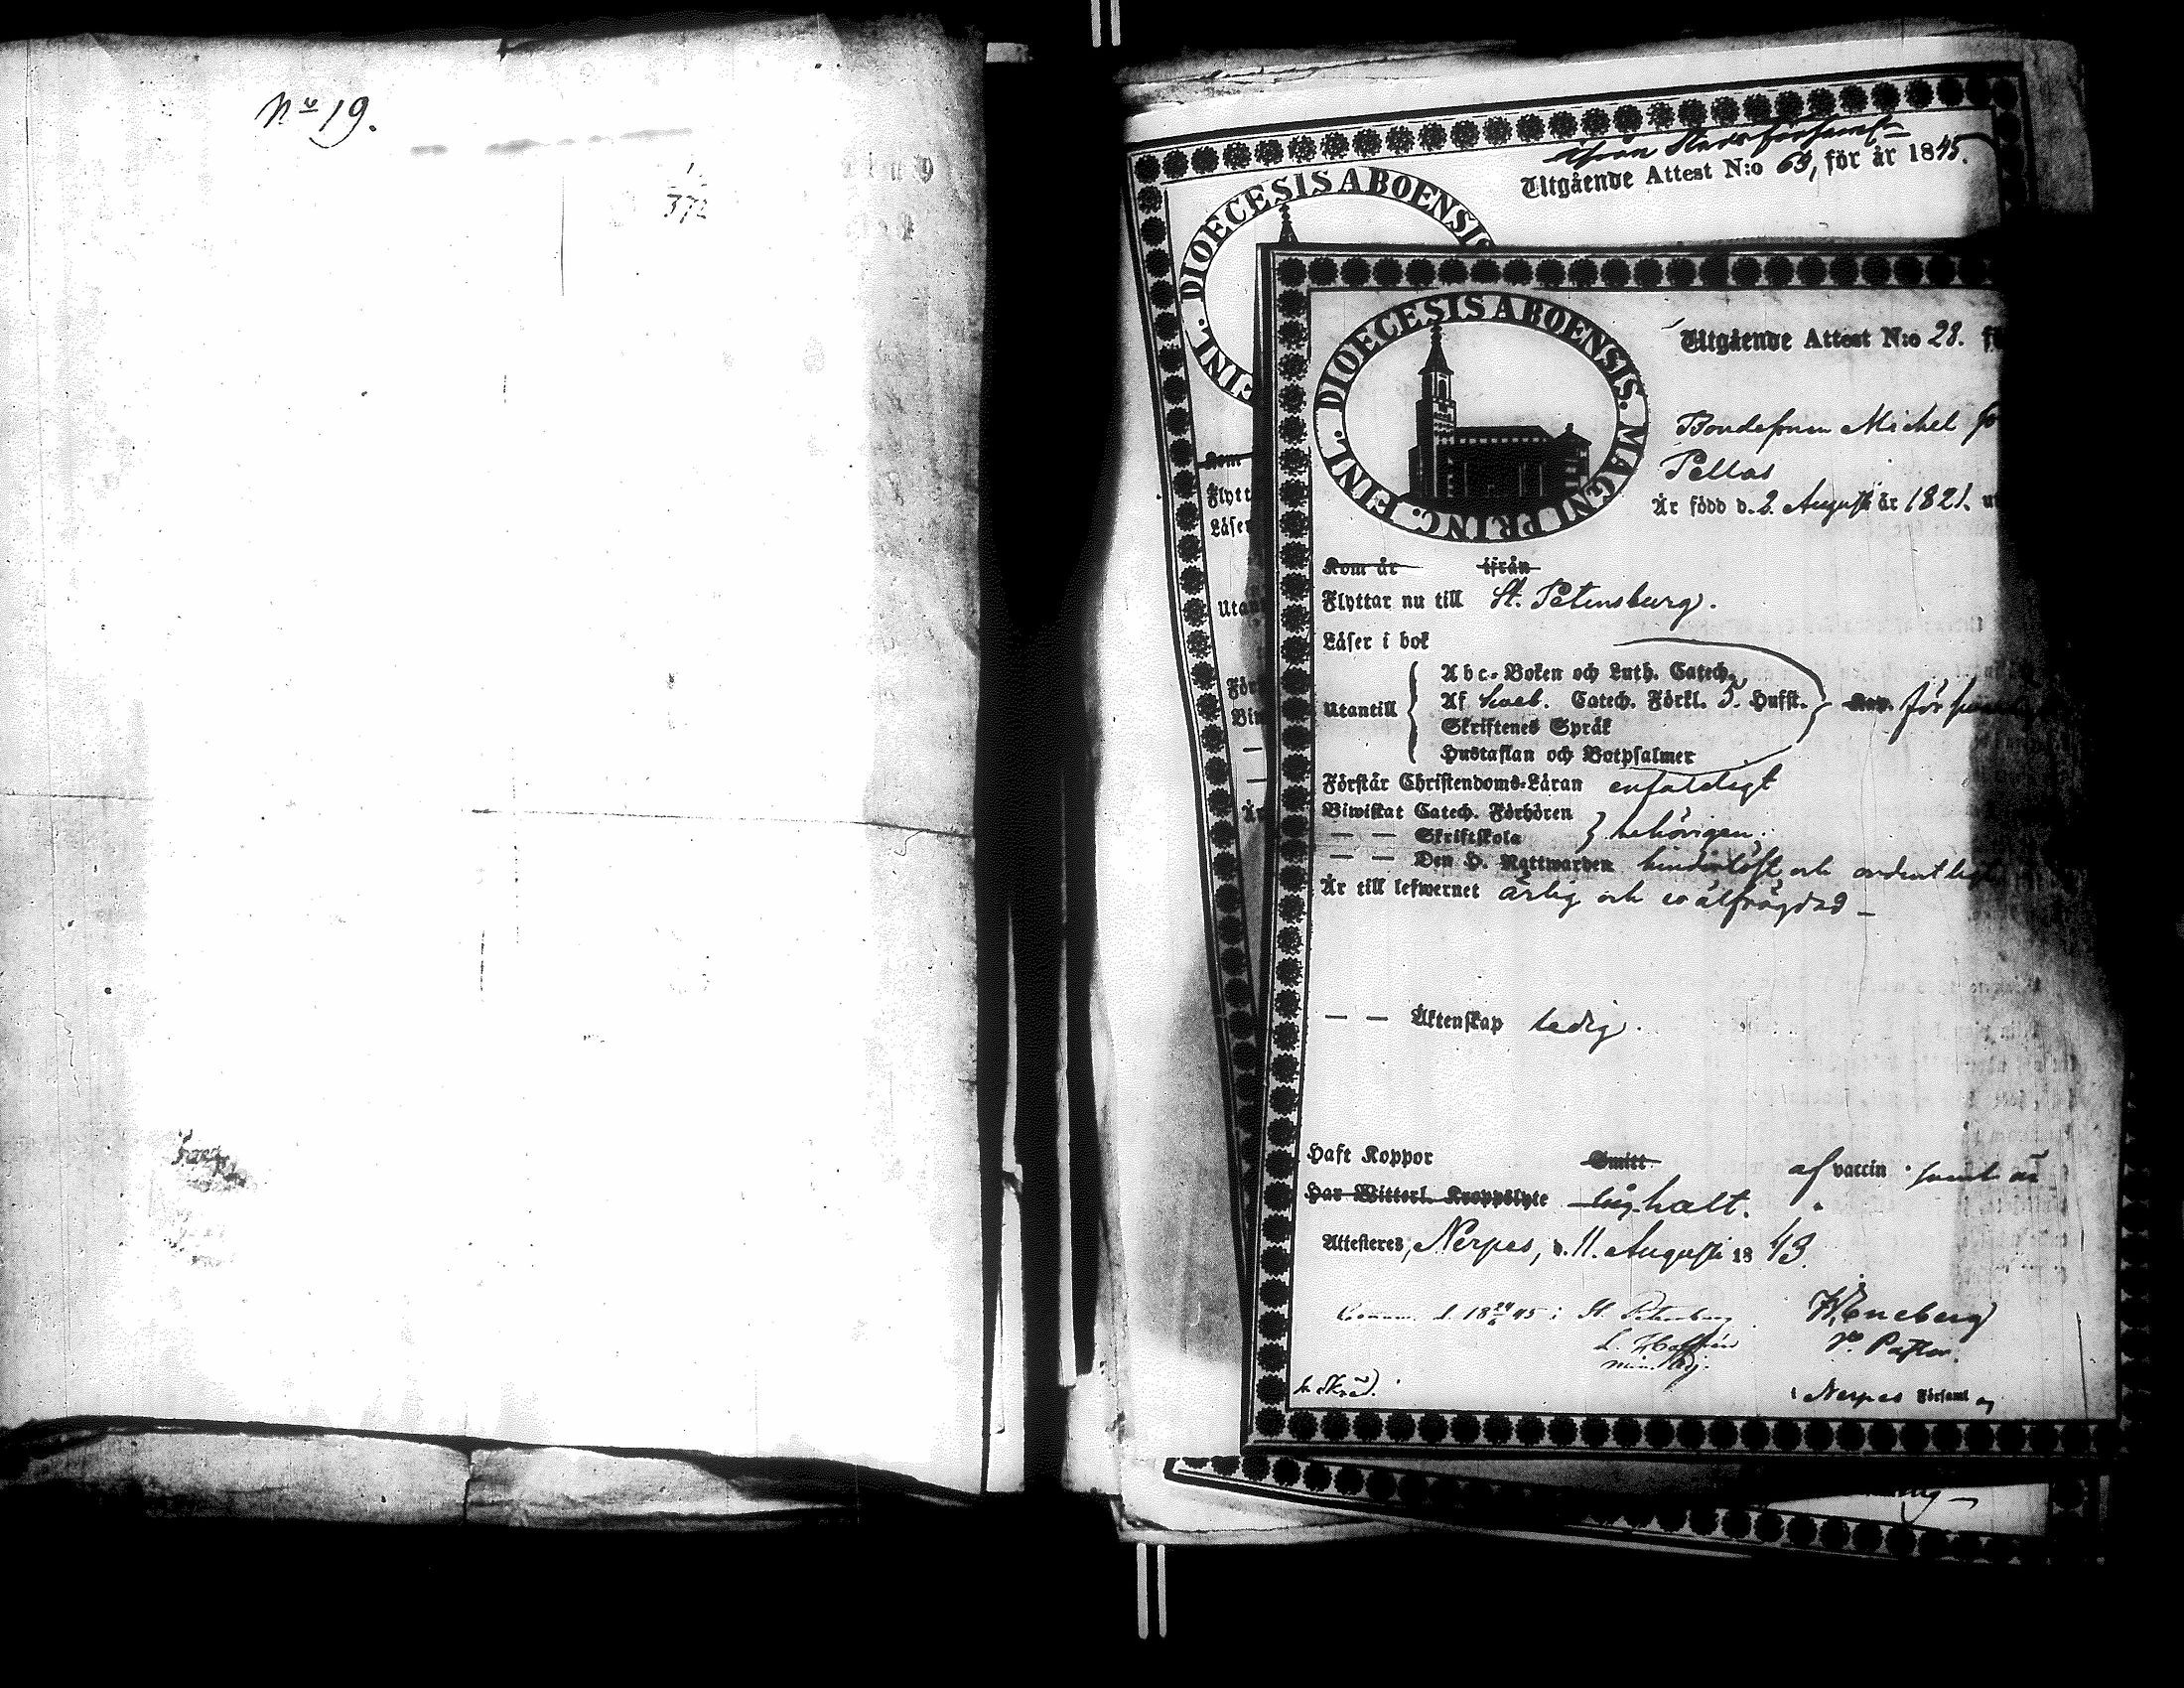 No 19.
1
372
ifrån Stads församl-
Utgående Attest N:o 69, för år 1845.
DIOECESIS ABOENSI
FINL.
Kom
Flytt
Läser
Utan
För
Biw
Är
DIOECESIS ABOENSIS. MAGNI PRINC. FINL.
Utgående Attest N:o 28. fö
Bondesonen Michel
Pellas
Är född d. 2. Augusti år 1821. u
Kom år ifrån
Flyttar nu till St. Petersburg.
Läser i bok
Utantill
Abc-Boken och Luth. Catech.
Af Sveb. Catech. Förkl. 5. Hufst.
Skriftenes Språk
Hustaflan och Botpsalmer
för
Förstår Christendoms-Läran enfaldigt
Biwistat Catech. Förhören
— — Skriftskola behörigen.
— — Den H. Nattwarden hinderlöst och ordentligt
Är till lefwernet ärlig och wälfrägdad —
— — Äktenskap ledig.
Haft Koppor Smitt af vaccin samt är
Har Witterl. Kroppslyte låghalt.
Attesteras, Nerpes, d. 11. Augusti 1843.
Comun. d. 18 24/6 45 i St. Petersburg
Eneberg
L.
v. Pastor.
min. adj.
i Nerpes Församl